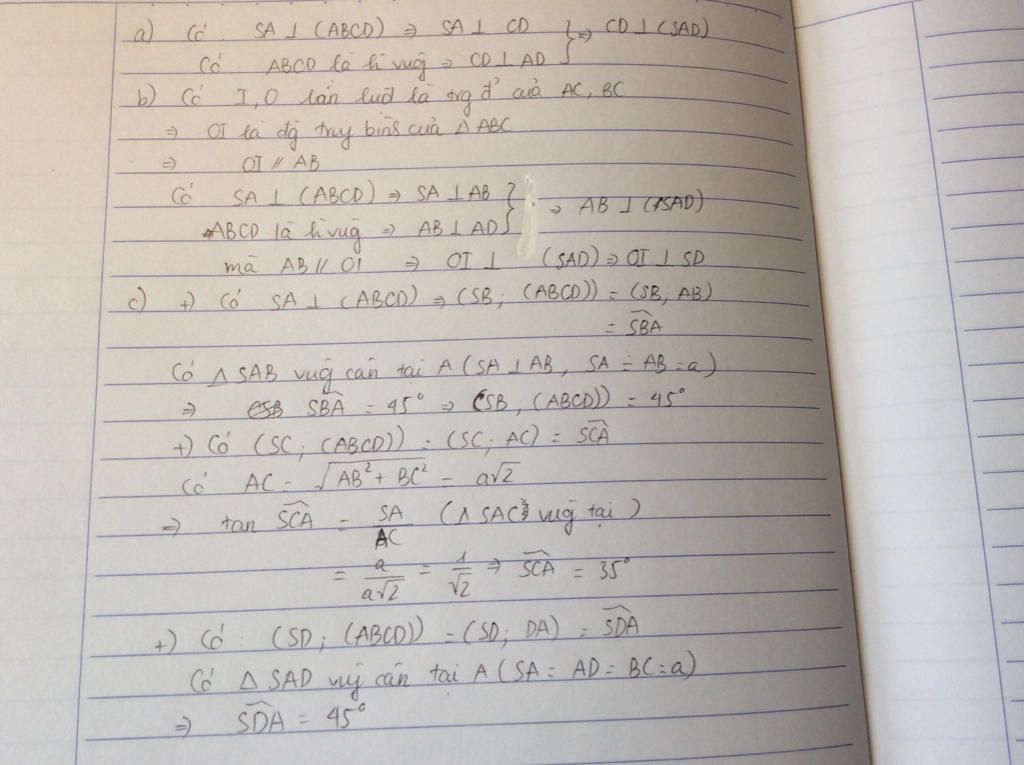 a) Có SA ⊥ (ABCD) ⇒ SA ⊥ CD } ⇒ CD ⊥ (SAD)
Có ABCD là h vug ⇒ CD ⊥ AD
b) Có I, O lần lượt là trg đ' của AC, BC
⇒ OI là đg truy bình của △ ABC
⇒ OI // AB
Có SA ⊥ (ABCD) ⇒ SA ⊥ AB } ⇒ AB ⊥ (SAD)
ABCD là h vug ⇒ AB ⊥ AD
mà AB // OI ⇒ OI ⊥ (SAD) ⇒ OI ⊥ SD
c) +) Có SA ⊥ (ABCD) ⇒ (SB; (ABCD)) = (SB, AB)
= SBA
Có △ SAB vug cân tại A (SA ⊥ AB, SA = AB = a)
⇒ SBA = 45° ⇒ (SB, (ABCD)) = 45°
+) Có (SC; (ABCD)) = (SC; AC) = SCA
Có AC = √(AB² + BC²) = a√2
⇒ tan SCA = SA/AC (△ SAC vug tại)
= a/a√2 = 1/√2 ⇒ SCA = 35°
+) Có: (SD; (ABCD)) = (SD; DA) = SDA
Có △ SAD vug cân tại A (SA = AD = BC = a)
⇒ SDA = 45°